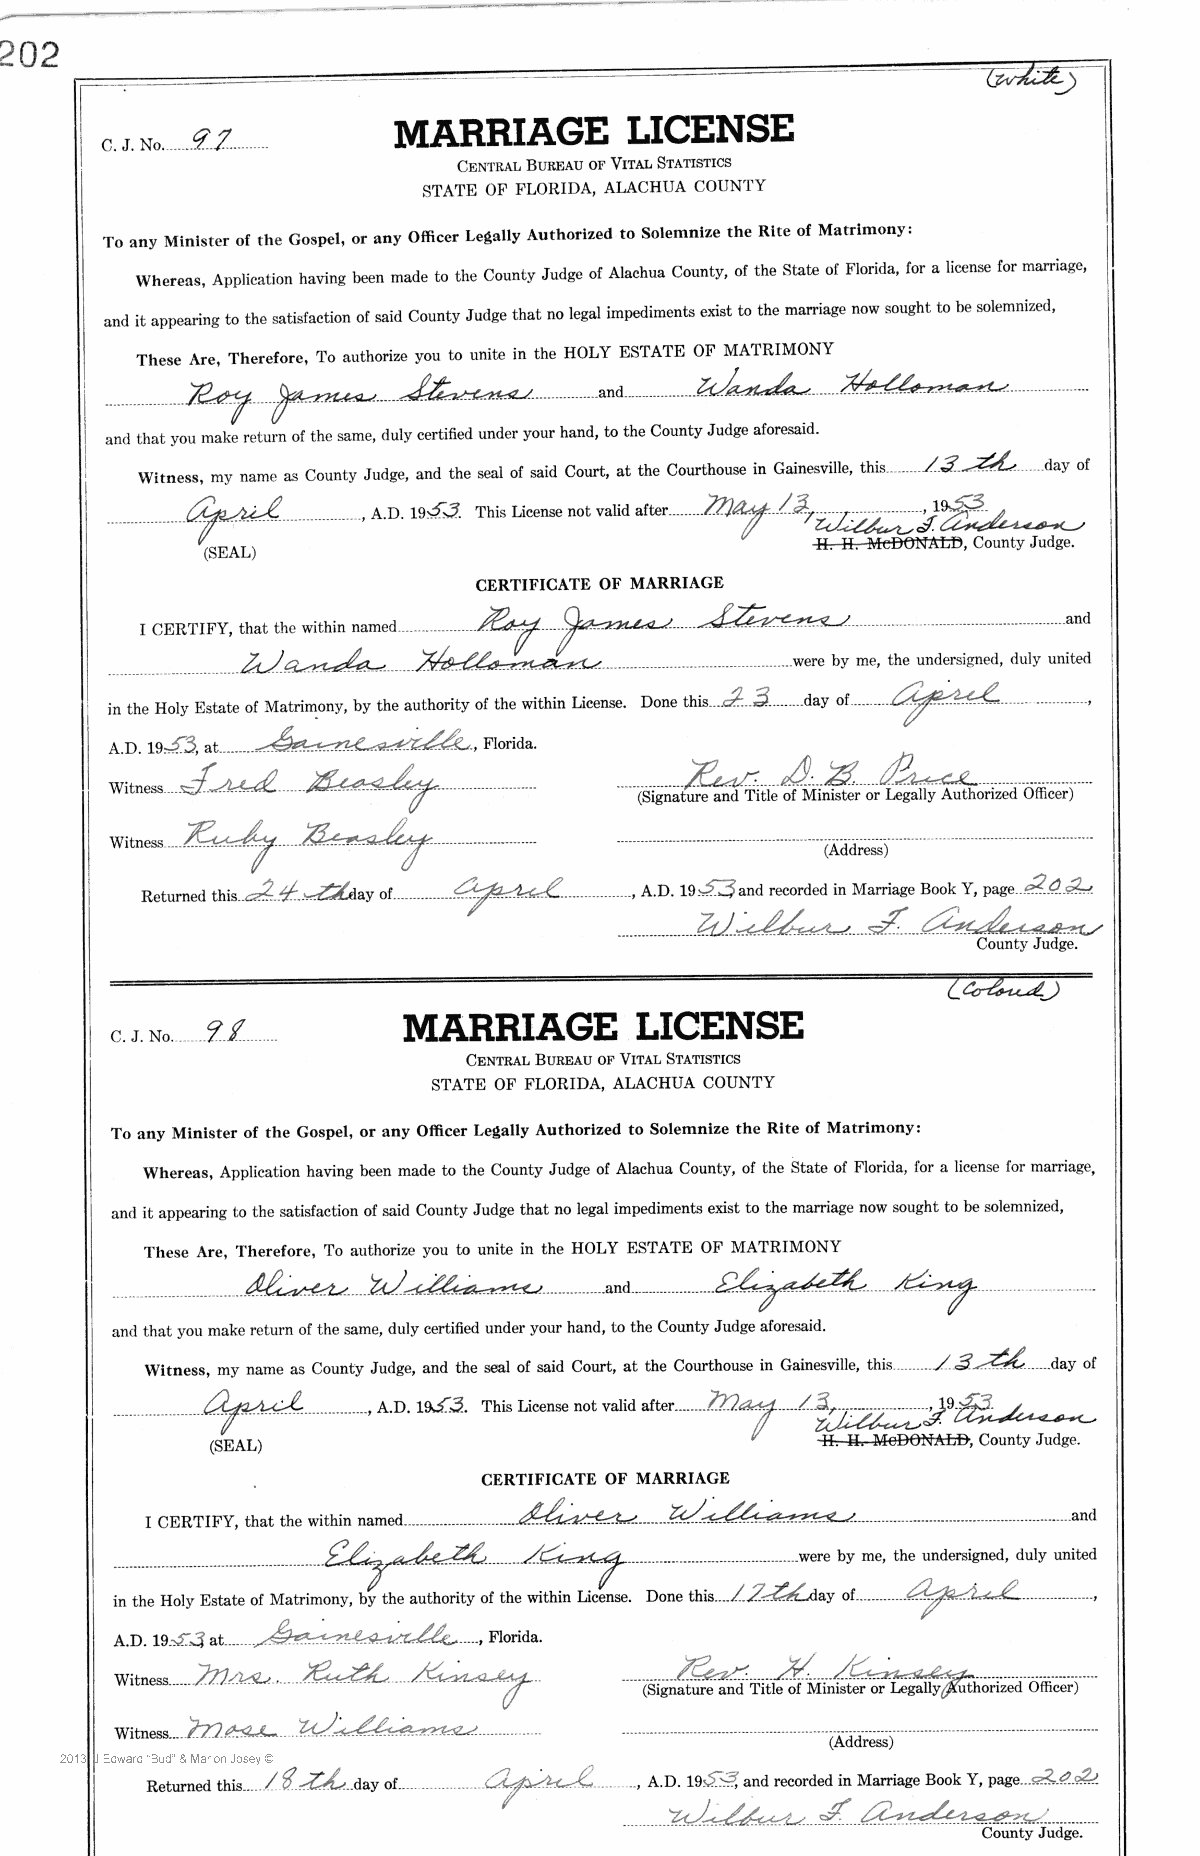 202
(White)
C. J. No. 97
MARRIAGE LICENSE
CENTRAL BUREAU OF VITAL STATISTICS
STATE OF FLORIDA, ALACHUA COUNTY
To any Minister of the Gospel, or any Officer Legally Authorized to Solemnize the Rite of Matrimony:
Whereas, Application having been made to the County Judge of Alachua County, of the State of Florida, for a license for marriage,
and it appearing to the satisfaction of said County Judge that no legal impediments exist to the marriage now sought to be solemnized,
These Are, Therefore, To authorize you to unite in the HOLY ESTATE OF MATRIMONY
Roy James Stevens and Wanda Holloman
and that you make return of the same, duly certified under your hand, to the County Judge aforesaid.
Witness, my name as County Judge, and the seal of said Court, at the Courthouse in Gainesville, this 13th day of
April, A.D. 1953. This License not valid after May 13, , 1953
Wilbur F. Anderson
(SEAL) H. H. McDONALD, County Judge.
CERTIFICATE OF MARRIAGE
I CERTIFY, that the within named Roy James Stevens and
Wanda Holloman were by me, the undersigned, duly united
in the Holy Estate of Matrimony, by the authority of the within License. Done this 23 day of April,
A.D. 1953, at Gainesville, Florida.
Witness Fred Beasley Rev. D. B. Price
(Signature and Title of Minister or Legally Authorized Officer)
Witness Ruby Beasley
(Address)
Returned this 24th day of April, A.D. 1953, and recorded in Marriage Book Y, page 202
Wilbur F. Anderson
County Judge.
(Colored)
C. J. No. 98
MARRIAGE LICENSE
CENTRAL BUREAU OF VITAL STATISTICS
STATE OF FLORIDA, ALACHUA COUNTY
To any Minister of the Gospel, or any Officer Legally Authorized to Solemnize the Rite of Matrimony:
Whereas, Application having been made to the County Judge of Alachua County, of the State of Florida, for a license for marriage,
and it appearing to the satisfaction of said County Judge that no legal impediments exist to the marriage now sought to be solemnized,
These Are, Therefore, To authorize you to unite in the HOLY ESTATE OF MATRIMONY
Oliver Williams and Elizabeth King
and that you make return of the same, duly certified under your hand, to the County Judge aforesaid.
Witness, my name as County Judge, and the seal of said Court, at the Courthouse in Gainesville, this 13th day of
April, A.D. 1953. This License not valid after May 13, , 1953
Wilbur F. Anderson
(SEAL) H. H. McDONALD, County Judge.
CERTIFICATE OF MARRIAGE
I CERTIFY, that the within named Oliver Williams and
Elizabeth King were by me, the undersigned, duly united
in the Holy Estate of Matrimony, by the authority of the within License. Done this 17th day of April,
A.D. 1953, at Gainesville, Florida.
Witness Mrs. Ruth Kinsey Rev. H. Kinsey
(Signature and Title of Minister or Legally Authorized Officer)
Witness Mose Williams
(Address)
2013 J Edward "Bud" & Marion Josey ©
Returned this 18th day of April, A.D. 1953, and recorded in Marriage Book Y, page 202
Wilbur F. Anderson
County Judge.